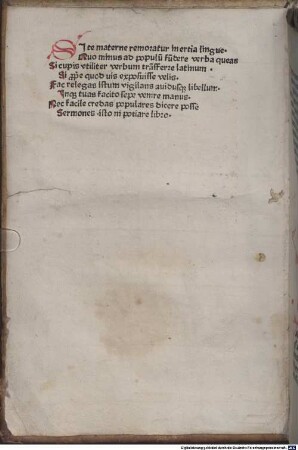 Si te materne remoratur inertia lingue.
Quo minus ad populū fūdere verba queas
Si cupis vtiliter verbum trāsferre latinum.
Si ꝓpͥe quod uis exposuisse velis.
Fac relegas istum vigilans auidusqꝫ libellum.
Inqꝫ tuas facito sepe venire manus.
Nec facile credas populares dicere posse
Sermones isto ni potiare libro.